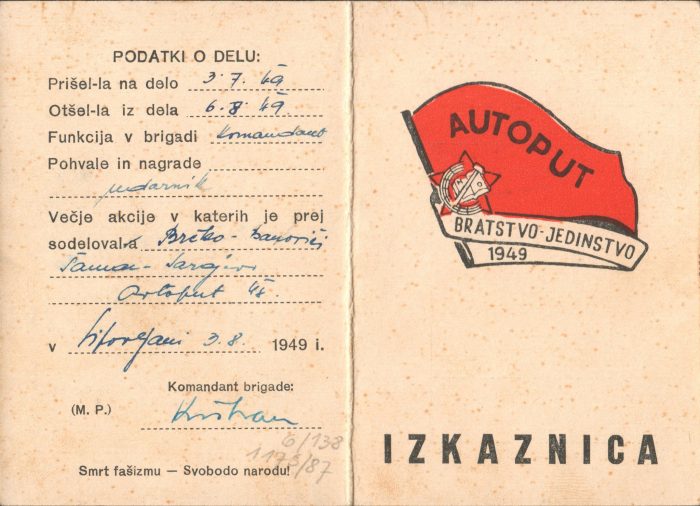 PODATKI O DELU:
Prišel-la na delo 3. 7. 49
Otšel-la iz dela 6. 8. 49.
Funkcija v brigadi Komandant
Pohvale in nagrade
udarnik
Večje akcije v katerih je prej
sodeloval-a Brčko-Banovići
Šamac-Sarajevo
Autoput 48.
v 3. 8. 1949 i.
Komandant brigade:
(M. P.)
6/138
1173/87
Smrt fašizmu — Svobodo narodu!
AUTOPUT
BRATSTVO-JEDINSTVO
1949
IZKAZNICA